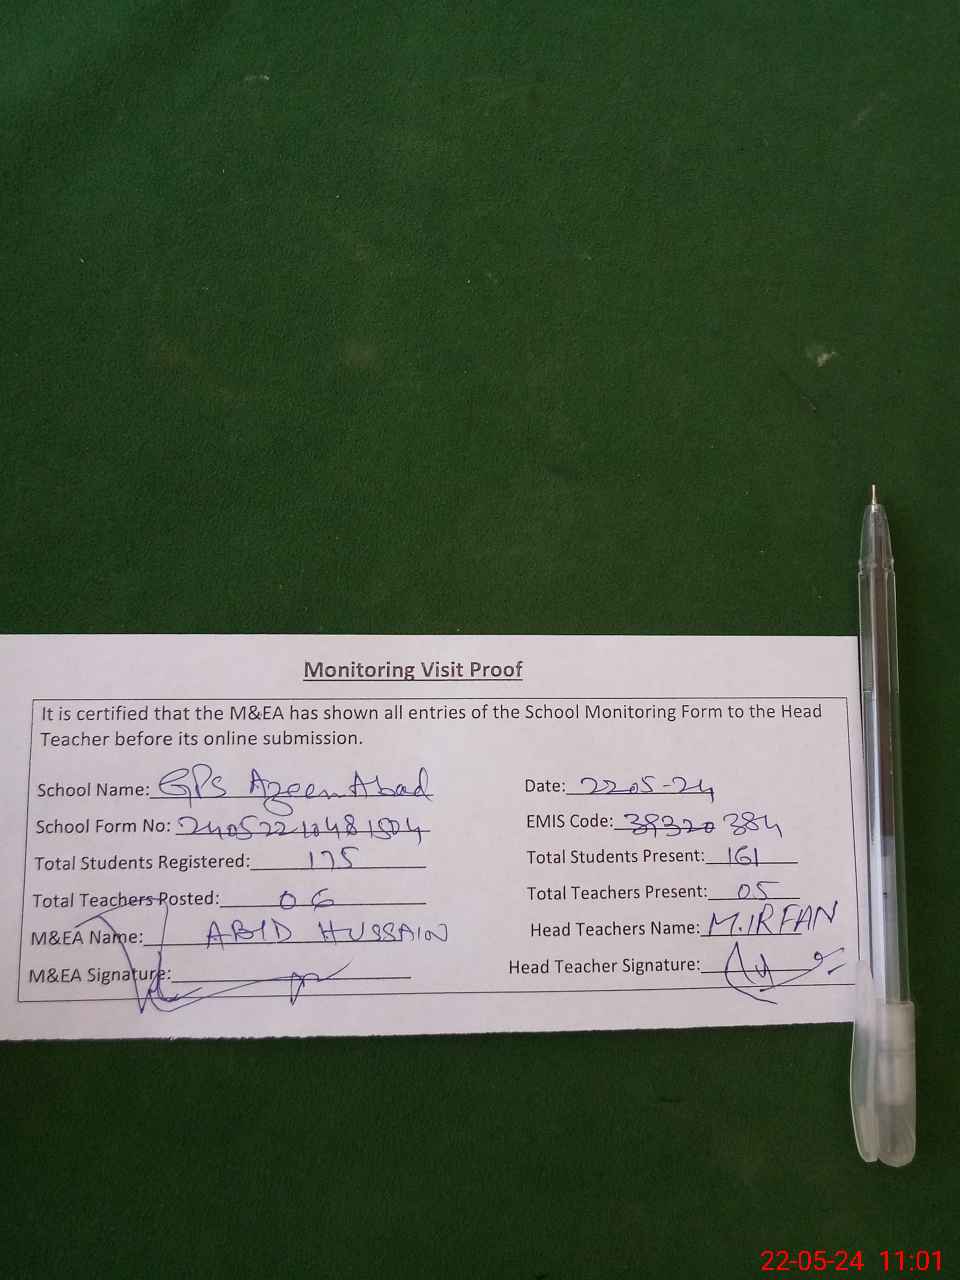 Monitoring Visit Proof
It is certified that the M&EA has shown all entries of the School Monitoring Form to the Head
Teacher before its online submission.
School Name: GPS Azeem Abad Date: 2205-24
School Form No: 24052210481504 EMIS Code: 38320384
Total Students Registered: 175 Total Students Present: 161
Total Teachers Posted: 06 Total Teachers Present: 05
M&EA Name: ABID HUSSAIN Head Teachers Name: M.IRFAN
M&EA Signature: Head Teacher Signature:
22-05-24 11:01